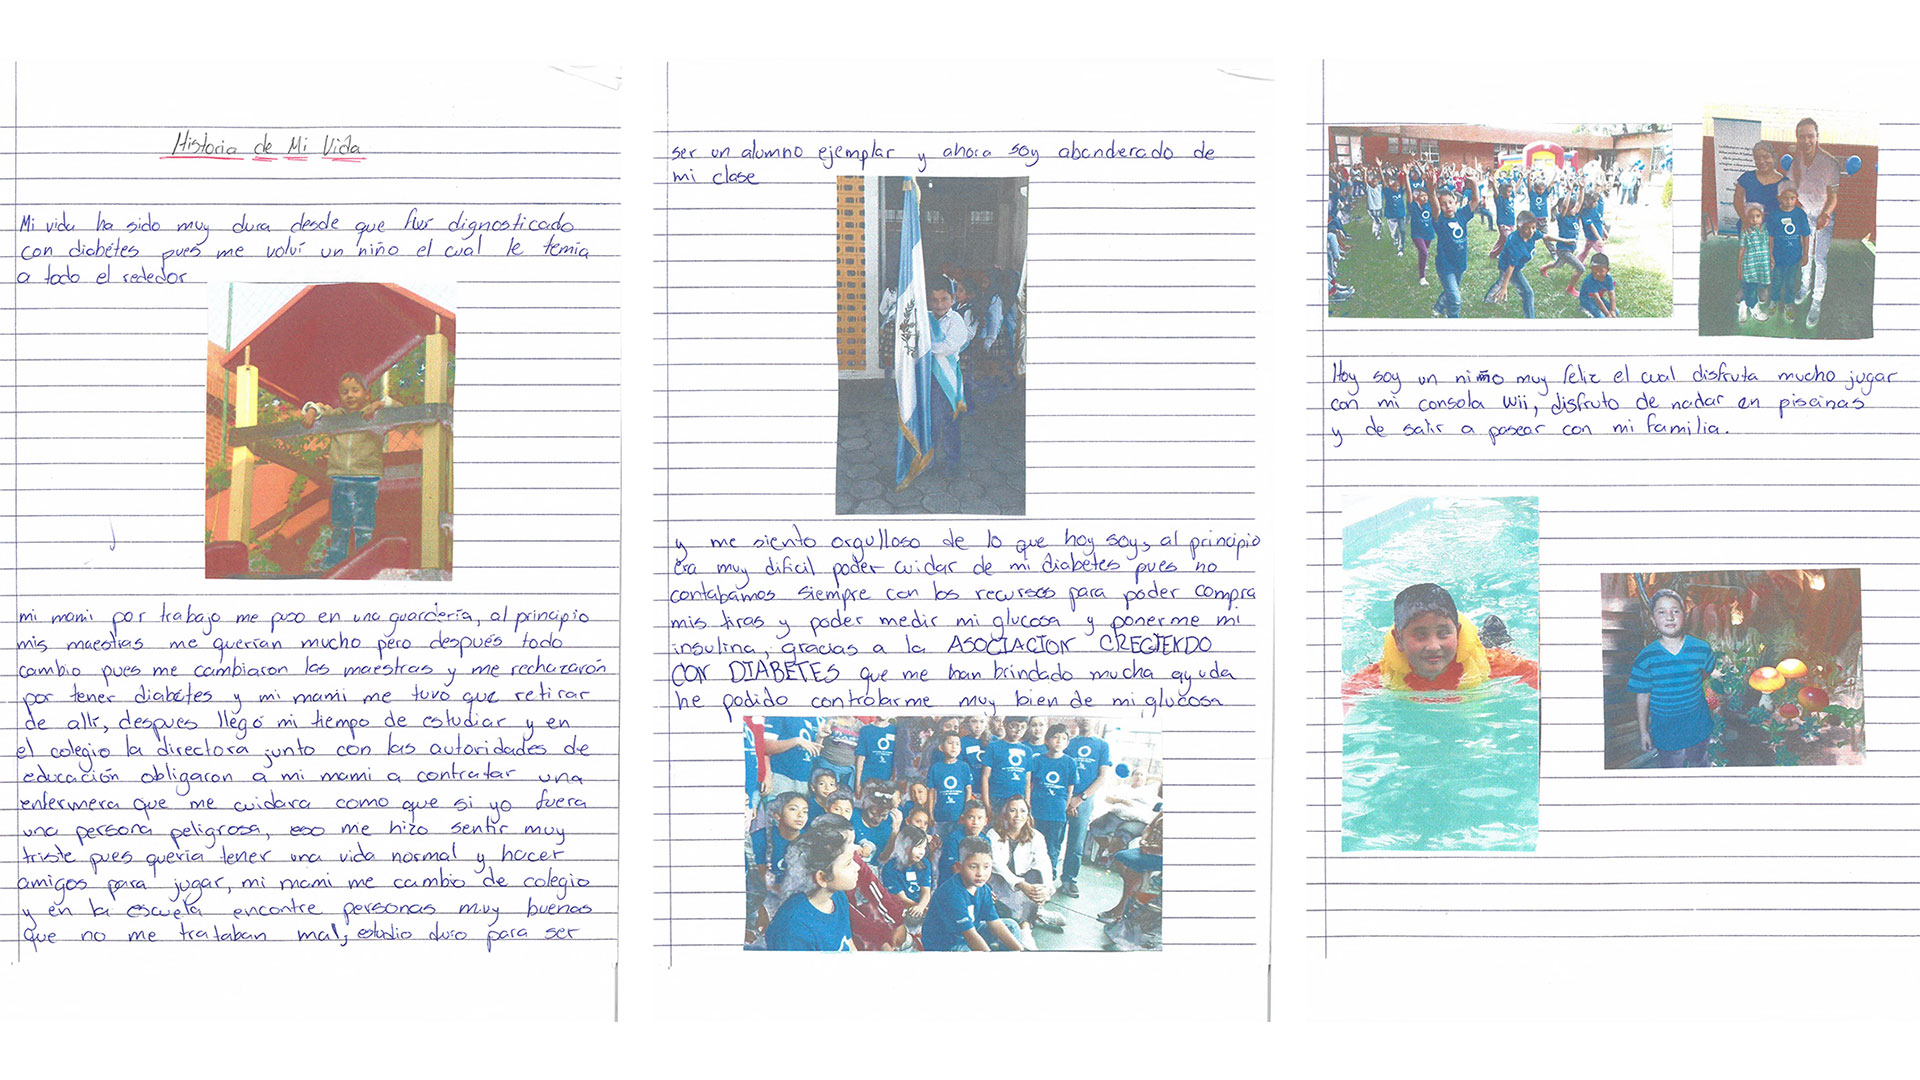 Historia de Mi Vida
Mi vida ha sido muy dura desde que fui dignosticado
con diabétes pues me volví un niño el cual le temia
a todo el rededor
mi mami por trabajo me puso en una guardería, al principio
mis maestras me querían mucho pero después todo
cambio pues me cambiaron las maestras y me rechazarón
por tener diabétes y mi mami me tuvo que retirar
de allí, despues llegó mi tiempo de estudiar y en
el colegio la directora junto con las autoridades de
educación obligaron a mi mami a contratar una
enfermera que me cuidara como que si yo fuera
una persona peligrosa, eso me hizo sentir muy
triste pues quería tener una vida normal y hacer
amigos para jugar, mi mami me cambio de colegio
y en la escuela encontre personas muy buenas
que no me trataban mal, estudio duro para ser
ser un alumno ejemplar y ahora soy abanderado de
mi clase
y me siento orgulloso de lo que hoy soy, al principio
era muy dificil poder cuidar de mi diabétes pues no
contabámos siempre con los recursos para poder compra
mis tiras y poder medir mi glucosa y ponerme mi
insulina, gracias a la ASOCIACION CRECIENDO
CON DIABETES que me han brindado mucha ayuda
he podido controlarme muy bien de mi glucosa
Hoy soy un niño muy feliz el cual disfruta mucho jugar
con mi consola Wii, disfruto de nadar en piscinas
y de salir a pasear con mi familia.